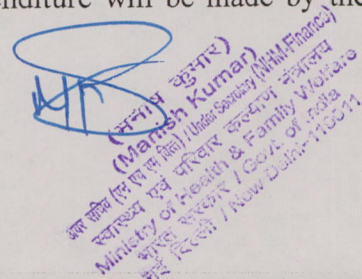 enditure will be made by the
(मनीष कुमार)
(Manish Kumar)
अवर सचिव (एन एच एम वित्त) / Under Secretary (NHM-Finance)
स्वास्थ्य एवं परिवार कल्याण मंत्रालय
Ministry of Health & Family Welfare
भारत सरकार / Govt. of India
नई दिल्ली / New Delhi-110011